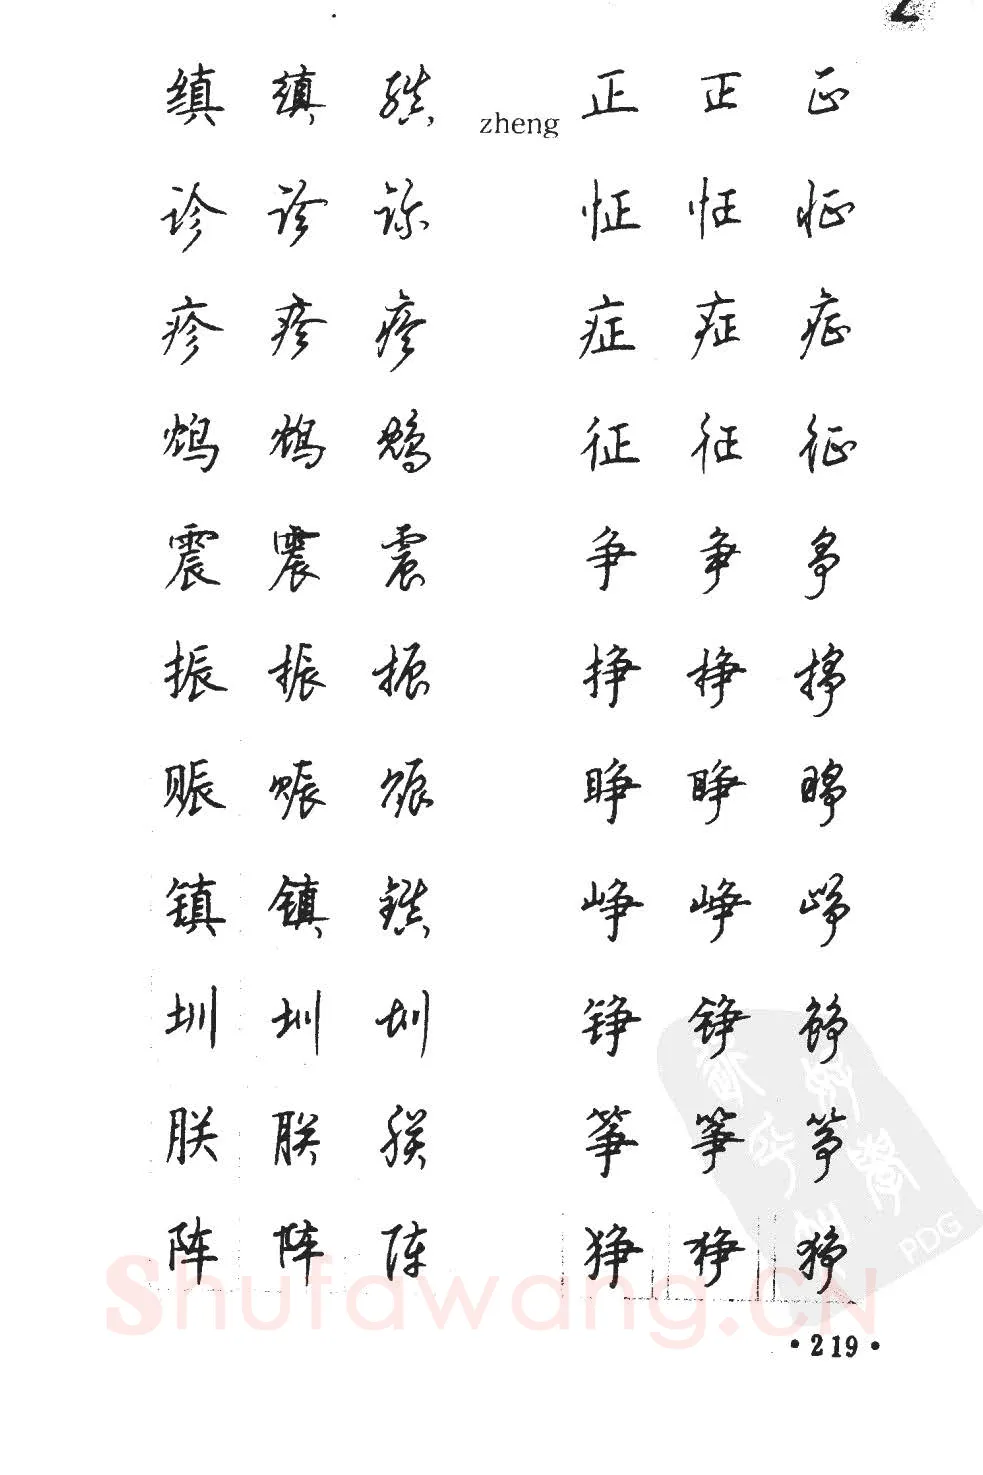 缜 缜 缜
诊 诊 诊
疹 疹 疹
鸩 鸩 鸩
震 震 震
振 振 振
赈 赈 赈
镇 镇 镇
圳 圳 圳
朕 朕 朕
阵 阵 阵
zheng
正 正 正
怔 怔 怔
症 症 症
征 征 征
争 争 争
挣 挣 挣
睁 睁 睁
峥 峥 峥
铮 铮 铮
筝 筝 筝
狰 狰 狰
PDG
Shufawang.CN
·219·